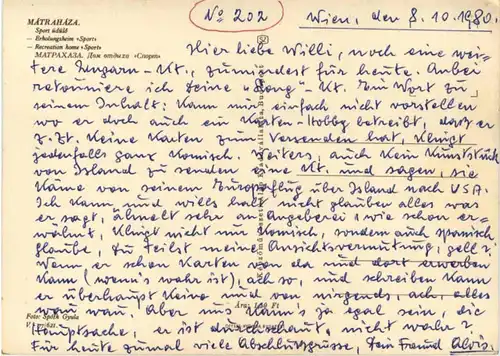 MÁTRAHÁZA.
Sport üdülő
— Erholungsheim «Sport»
— Recreation home «Sport»
МАТРАХАЗА. Дом отдыха «Спорт»
No 202
Wien, den 8.10.1980.
Hier liebe Willi, noch eine wei-
tere Ungarn-Kt., zumindest für heute. Anbei
retourniere ich Deine "Song"-Kt. Ein Wort zu
seinem Inhalt: Kann mir einfach nicht vorstellen
wo er doch auch ein Karten-Hobby betreibt, dass er
z.Zt. keine Karten zum Versenden hat, klingt
jedenfalls ganz komisch. Weiters, auch kein Kunststück
von Island zu senden eine Kt. und sagen, sie
käme von seinem Europaflug über Island nach USA.
Ich kann und wills halt nicht glauben alles was
er sagt, ähnelt sehr an Angeberei wie schon er-
wähnt. Klingt nicht nur komisch, sondern auch spanisch
glaube, Du teilst meine Ansichtsvermutung, gell?
Wenn er schon Karten von da und dort erwerben
kann (wenn's wahr ist), ach so, und schreiben kann
er überhaupt keine und von nirgends, ach, alles
wau wau. Aber uns kann's ja egal sein, die
Hauptsache, er ist durchschaut, nicht wahr?
Für heute zumal viele Abschlussgrüsse, Dein Freund Alois.
Foto: Spéth Gyula
Ára: Ft
Képzőművészeti Alap Kiadóvállalata, Budapest